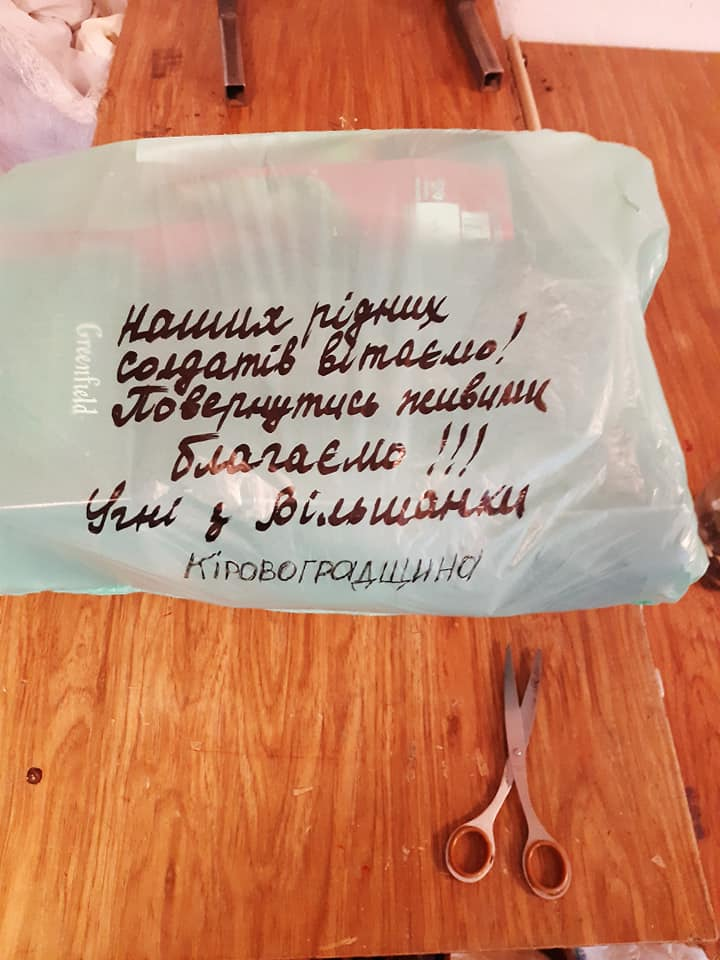 Наших рідних
солдатів вітаємо!
Повернутись живими
благаємо !!!
Учні з Вільшанки
КІРОВОГРАДЩИНА
Greenfield